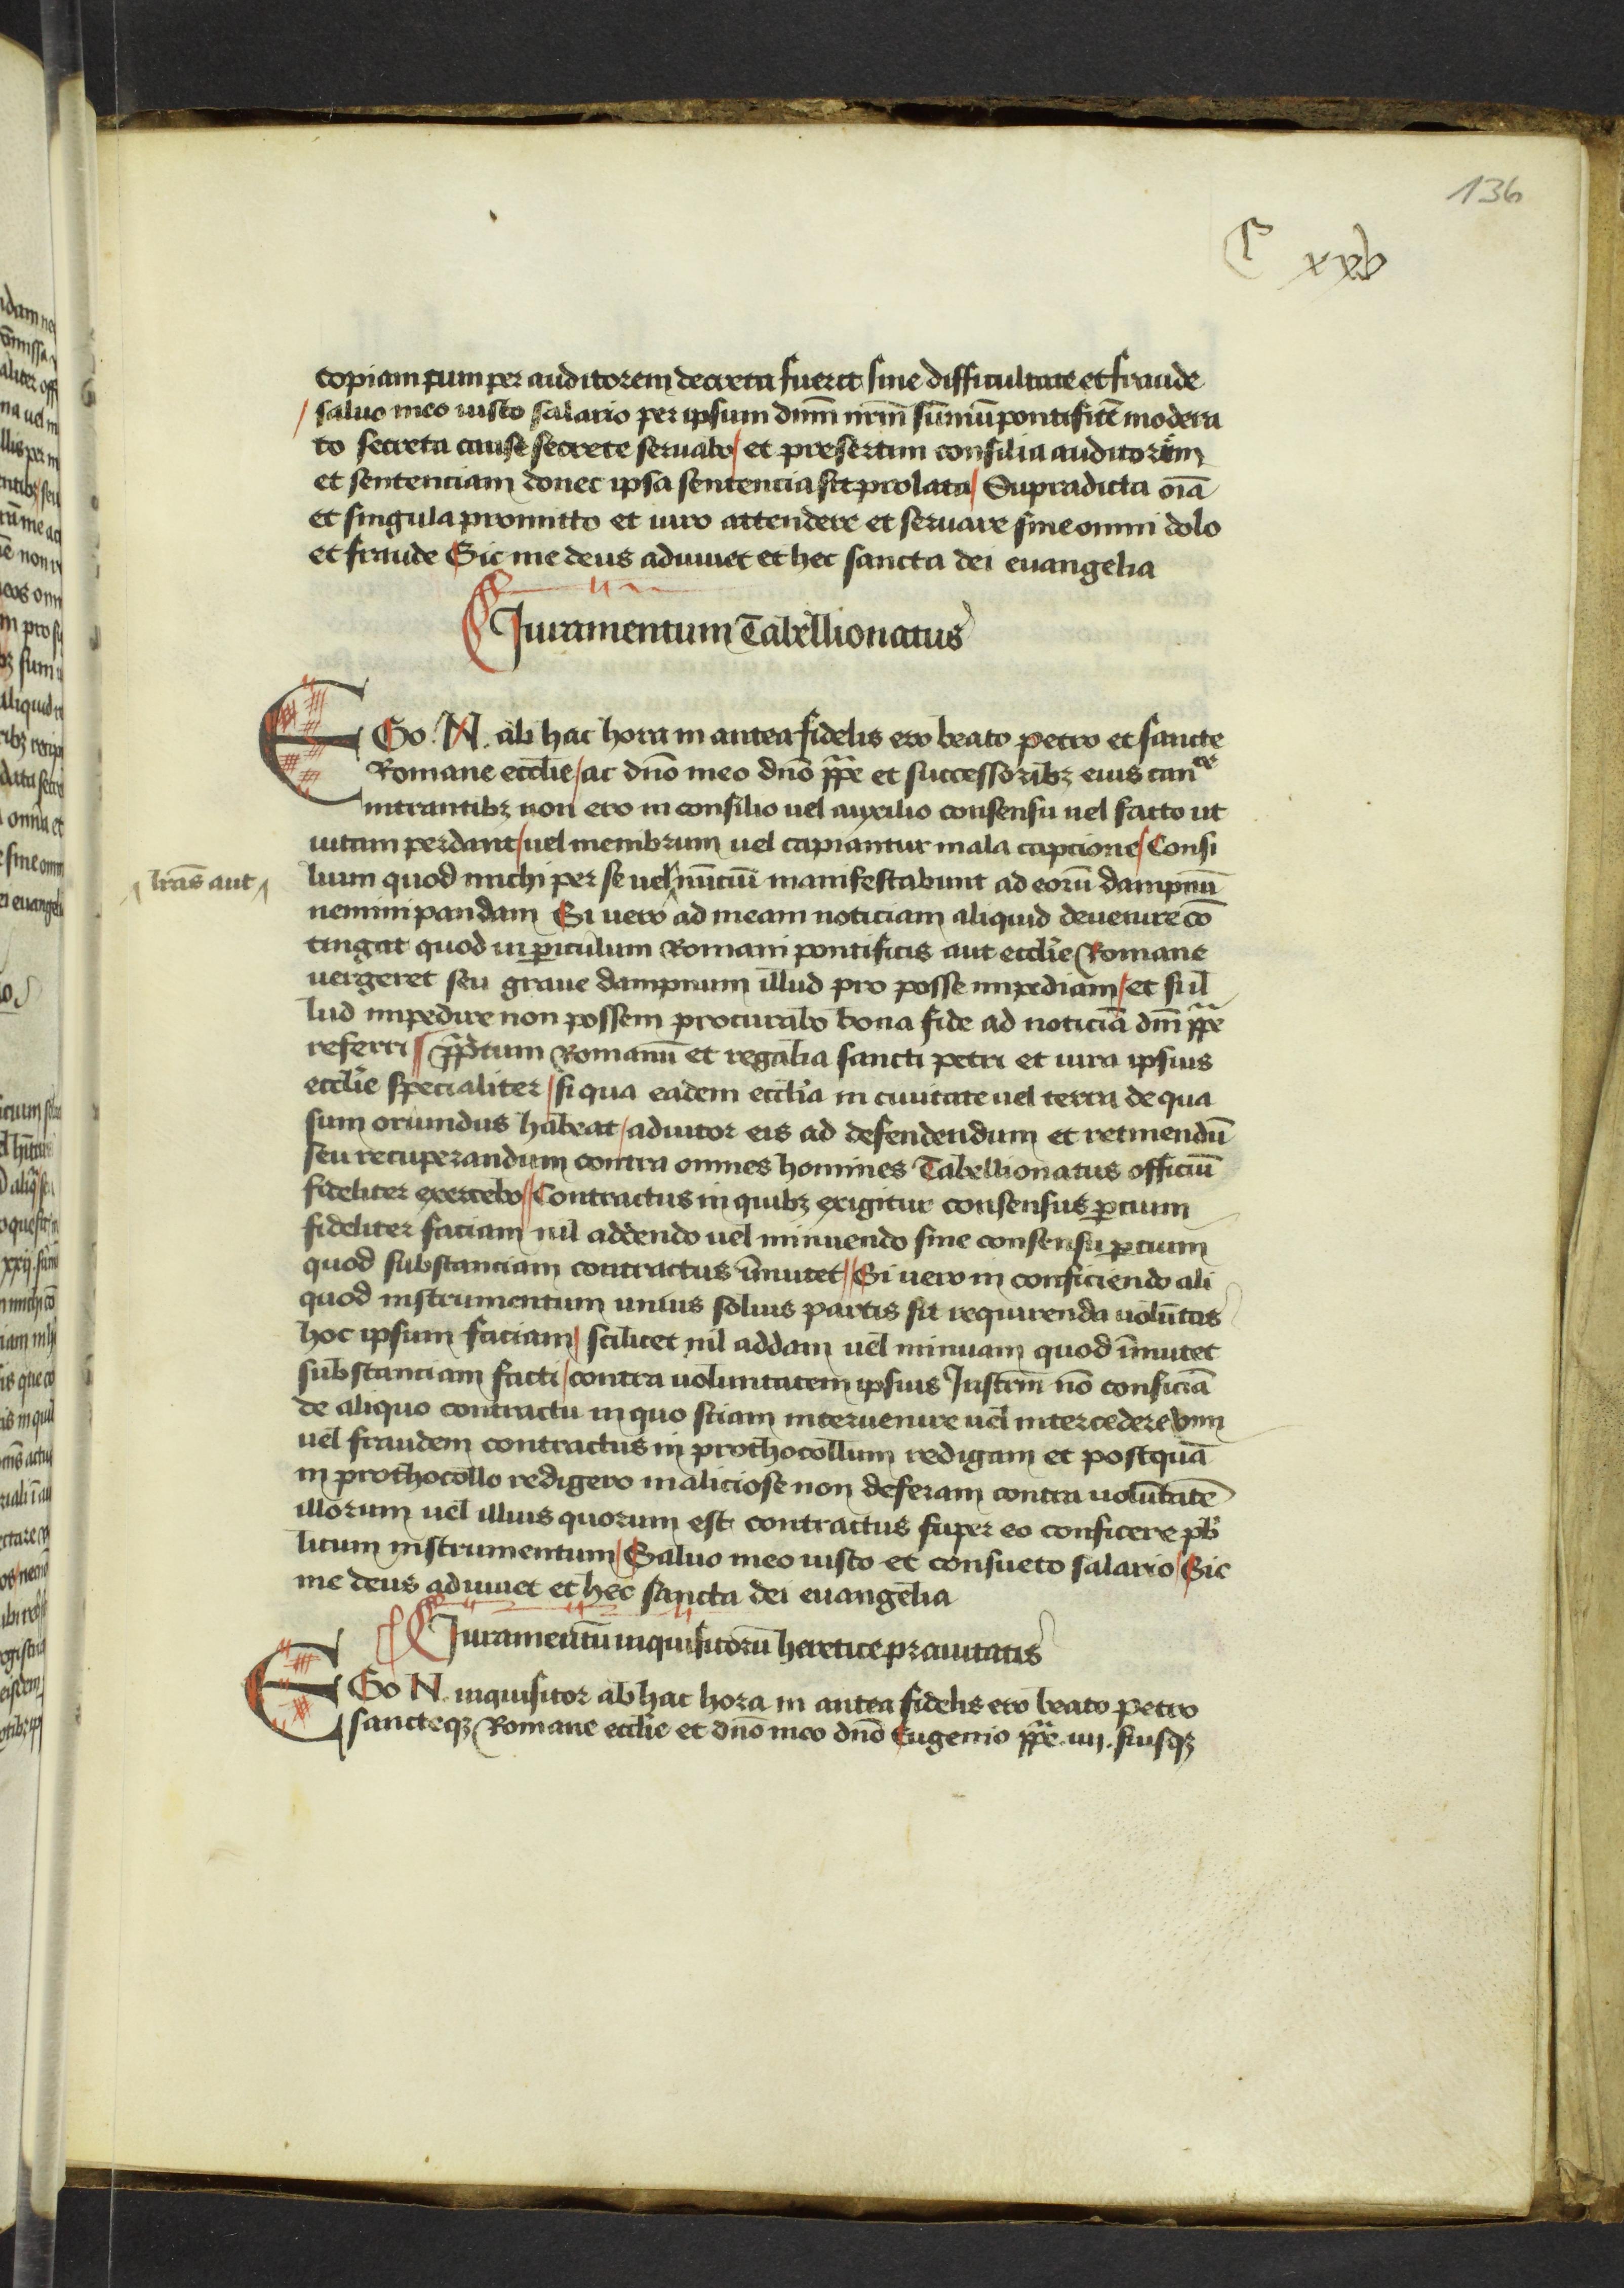 136
C xxv
copiam cum per auditorem decreta fuerit sine difficultate et fraude
saluo meo iusto salario per ipsum dnm nrm sūmū pontificē modera
to secreta cause secrete seruabo et presertim consilia auditorum
et sentenciam donec ipsa sentencia sit prolata Supradicta oīa
et singula promitto et iuro attendere et seruare sine omni dolo
et fraude Sic me deus adiuuet et hec sancta dei euangelia
Juramentum Tabellionatus
EGo .N. ab hac hora in antea fidelis ero beato petro et sancte
Romane ecclie / ac dno meo dno ppe et successoribz eius can^ce
intrantibz non ero in consilio uel auxilio consensu uel facto ut
uitam perdant / uel membrum uel capiantur mala captione / Consi
lium quod michi per se uel ^ nūciū manifestabunt ad eorū dampnū
^ lras aut ^
nemini pandam Si uero ad meam noticiam aliquid deuenire cō
tingat quod in piculum Romani pontificis aut ecclie Romane
uergeret seu graue dampnum illud pro posse impediam / et si il
lud impedire non possem procurabo bona fide ad noticiā dni ppe
referri // ppatum Romanū et regalia sancti petri et iura ipsius
ecclie specialiter / si qua eadem ecclia in ciuitate uel terra de qua
sum oriundus habeat / adiutor eis ad defendendum et retinendū
seu recuperandum contra omnes homines Tabellionatus officiū
fideliter exercebo // Contractus in quibz exigitur consensus pcium
fideliter faciam nil addendo uel minuendo sine consensu pcium
quod substanciam contractus īmutet // Si uero in conficiendo ali
quod instrumentum unius solius partis sit requirenda uolūtas
hoc ipsum faciam / scilicet nil addam uel minuam quod īmutet
substanciam facti / contra uoluntatem ipsius Instrm nō conficiā
de aliquo contractu in quo sciam interuenire uel intercedere vim
uel fraudem contractus in prothocollum redigam et postquā
in prothocollo redigero maliciose non deferam contra uolūtatē
illorum uel illius quorum est contractus super eo conficere pb
licum instrumentum / Saluo meo iusto et consueto salario / Sic
me deus adiuuet et hec sancta dei euangelia
Juramentū inquisitorū heretice prauitatis
EGo N. inquisitor ab hac hora in antea fidelis ero beato petro
sancteqz Romane ecclie et dno meo dno Eugenio ppe .iiij. suisqz